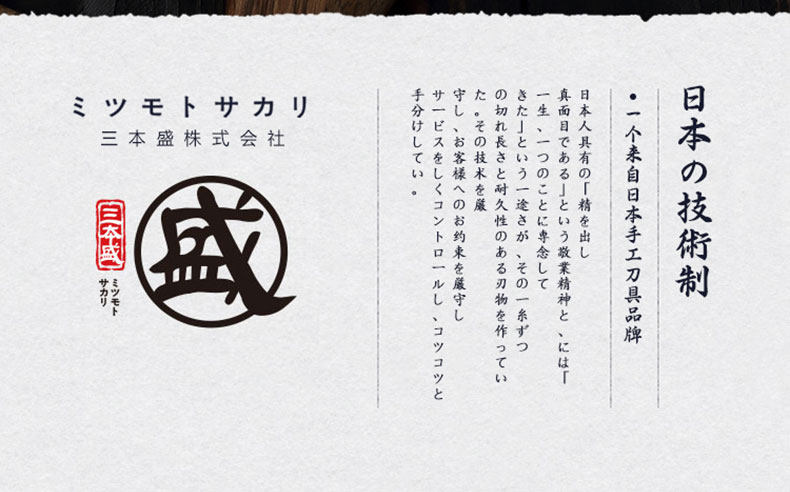 日本の技術制
•一个来自日本手工刀具品牌
日本人具有の「精を出し
真面目である」という敬業精神と、には「
一生、一つのことに専念して
きた」という一途さが、その一糸ずつ
の切れ長さと耐久性のある刃物を作ってい
た。その技术を厳
守し、お客様へのお約束を厳守し
サービスをしくコントロールし、コツコツと
手分けしてい。
ミツモトサカリ
三本盛株式会社
盛
三本盛
ミツモト
サカリ